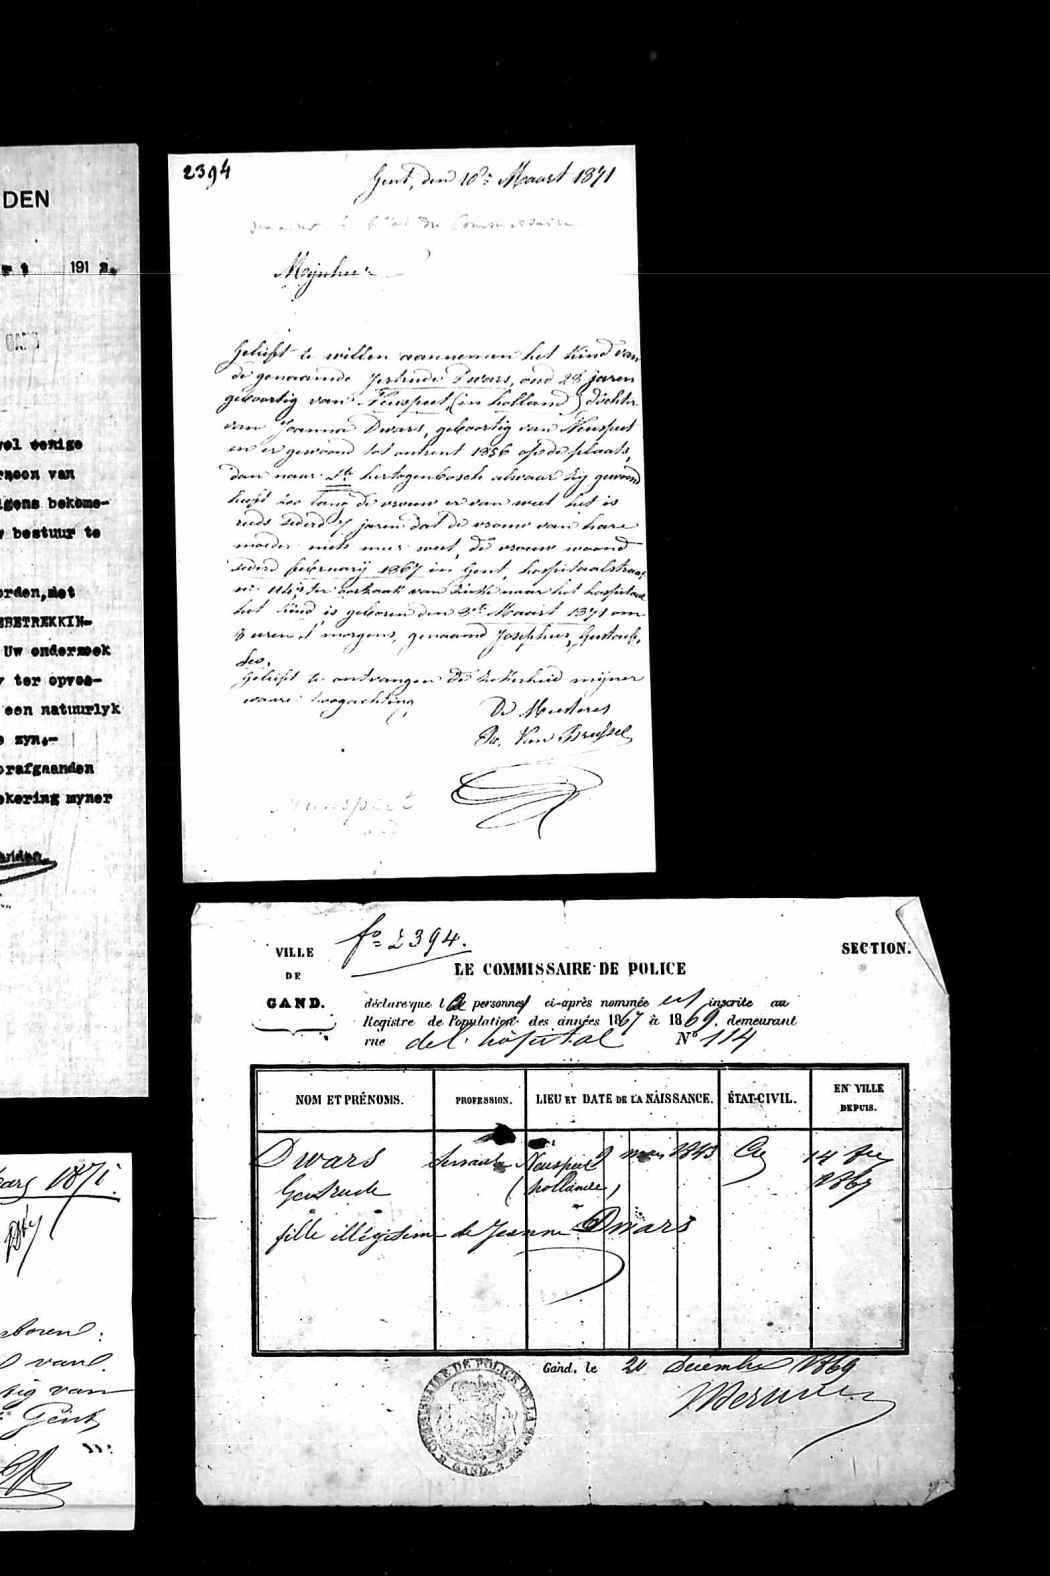 DEN
191 2.
vel eenige
rzoon van
lgens bekome-
w bestuur te
orden, met
EBETREKKIN-
Uw onderzoek
r ter opvoe-
een natuurlyk
e zyn.-
orafgaanden
ekering myner
2394
Gent, den 10de Maart 1871
Commissaire
Mijnheer
Gelieft te willen aannemen het kind van
de genaamde Gertrude Dwars, oud 28 jaren
geboortig van Neuspeet, (in holland) dochter
van Joanna Dwars, geboortig van Neuspeet
en er gewoond tot omtrent 1856 op de plaats,
dan naar Ste hertogenbosch alwaar zij gewoond
heeft zoo lang de vrouw er van weet het is
reeds sederd 7 jaren dat de vrouw van hare
moeder niets meer weet, de vrouw woond
sederd february 1867 in Gent, hospitaalstraat
n: 114, ter oorzaak van ziekte naar het hospitaal
het kind is geboren den 8ste Maart 1871 om
8 uren 's morgens, genaamd Josephus, Gustaaf,
Leo.
Gelieft te ontvangen de zekerheid mijner
ware hoogachting
De Meesteres
Van Brussel
Nunspeet
fo= 2394.
VILLE
DE
GAND.
SECTION.
LE COMMISSAIRE DE POLICE
déclare que la personne ci-après nommée est inscrite au
Registre de Population des années 1867 à 1869. demeurant
rue de l'hôpital No 114
NOM ET PRÉNOMS. PROFESSION. LIEU ET DATE DE LA NAISSANCE. ÉTAT-CIVIL. EN VILLE DEPUIS.
Dwars Servante Neuspeet 9 mars 1843 Cre 14 fev
Gertrude (hollande) 1867
fille illégitime de Jeanne Dwars
Gand, le 20 décembre 1869
COMMISSAIRE DE POLICE DE LA
GAND
mars 1871.
eboren:
van
tig van
Gent